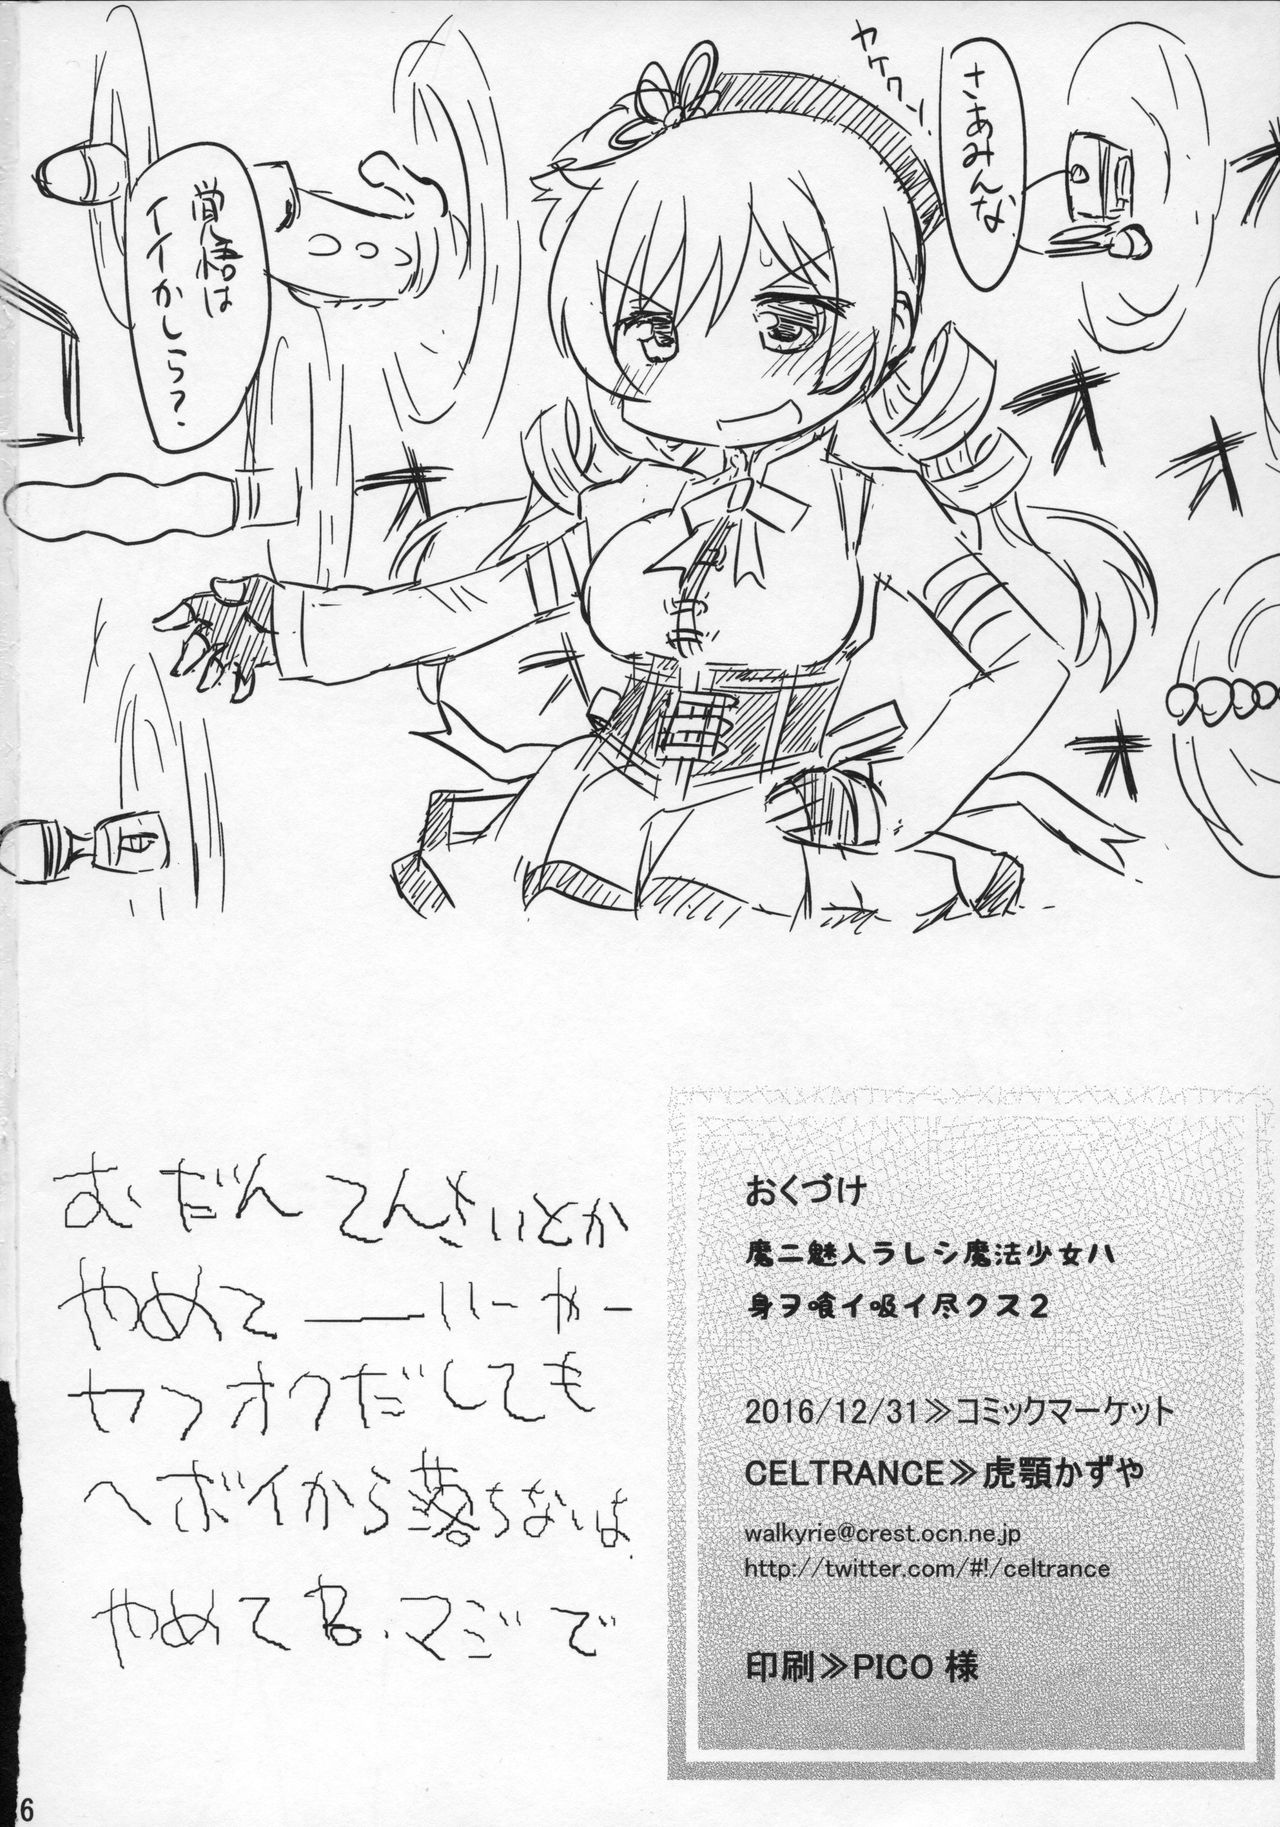 ヤケクソ!
さあみんな
覚悟は
イイかしら？
むだんてんさいとか
やめて
ヤフオクだしても
ヘボイから落ちないは
やめてね、マジで
おくづけ
魔ニ魅入ラレシ魔法少女ハ
身ヲ喰イ吸イ尽クス２
2016/12/31≫コミックマーケット
CELTRANCE≫虎顎かずや
walkyrie@crest.ocn.ne.jp
http://twitter.com/#!/celtrance
印刷≫PICO 様
6